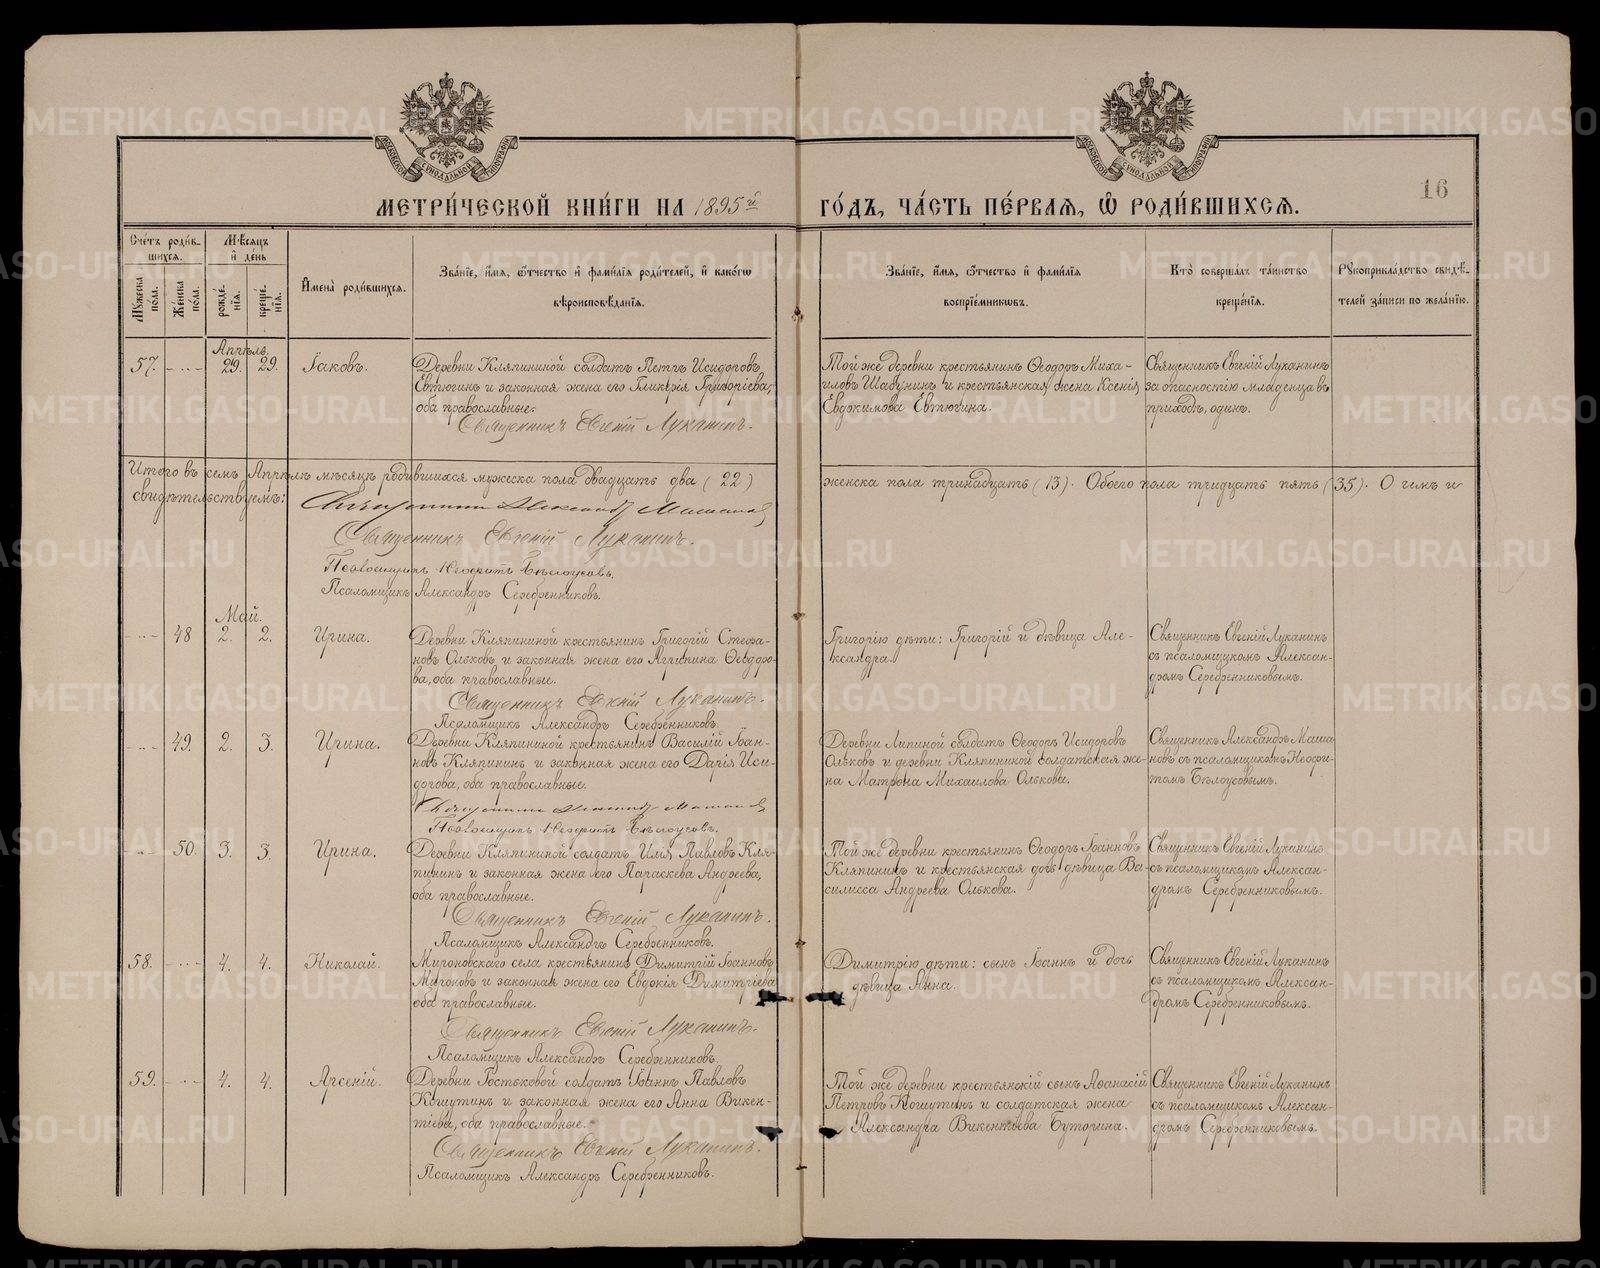 МОСКОВСКОЙ СѴНОДАЛЬНОЙ ТИПОГРАФІИ
МОСКОВСКОЙ СѴНОДАЛЬНОЙ ТИПОГРАФІИ
16
МЕТРИ́ЧЕСКОЙ КНИ́ГИ НА 1895й ГО́ДЪ, ЧА́СТЬ ПЕ́РВАЯ, Ѡ РОДИ́ВШИХСЯ.
Сче́тъ роди́вшихся.
Мѣ́сяцъ и де́нь
Мꙋжеска пола.
Же́нска пола.
рожде́нїя.
креще́нїя.
Имена̀ роди́вшихся.
Зва́нїе, и́мя, ѻ́тчество и фами́лїя роди́телей, и како́гѡ вѣроисповѣ́данїя.
Зва́нїе, и́мя, ѻ́тчество и фами́лїя воспрїе́мникѡвъ.
Кто̀ соверша́лъ та́инство креще́нїя.
Рꙋкоприкла́дство свидѣ́телей за́писи по жела́нїю.
Апрѣль.
57. - ·· - 29. 29. Іаковъ.
Деревни Кляпининой солдатъ Петръ Исидоровъ
Евтюгинъ и законная жена его Гликерія Григоріева,
оба православные.
Священникъ Евгеній Луканинъ.
Той же деревни крестьянинъ Ѳеодоръ Миха-
иловъ Шабунинъ и крестьянская жена Ксенія
Евдокимова Евтюгина.
Священникъ Евгеній Луканинъ
за опасностію младенца въ
приходѣ, одинъ.
Итого въ семъ Апрѣлѣ мѣсяцѣ родившихся мужеска пола двадцать два (22) женска пола тринадцать (13). Обоего пола тридцать пять (35). О чемъ и
свидѣтельствуемъ: Священникъ Александръ Машановъ
Священникъ Евгеній Луканинъ.
Псаломщикъ Неофитъ Бѣлоусовъ.
Псаломщикъ Александръ Серебренниковъ.
Май.
- ·· - 48 2. 2. Ирина.
Деревни Кляпининой крестьянинъ Григорій Стефа-
новъ Ольковъ и законная жена его Агрипина Ѳеодоро-
ва, оба православные.
Священникъ Евгеній Луканинъ.
Псаломщикъ Александръ Серебренниковъ.
Григорію дѣти: Григорій и дѣвица Але-
ксандра.
Священникъ Евгеній Луканинъ
съ псаломщикомъ Алексан-
дромъ Серебренниковымъ.
- ·· - 49. 2. 3. Ирина.
Деревни Кляпининой крестьянинъ Василій Іоан-
новъ Кляпининъ и законная жена его Дарія Иси-
дорова, оба православные.
Священникъ Александръ Машановъ
Псаломщикъ Неофитъ Бѣлоусовъ.
Деревни Липиной солдатъ Ѳеодоръ Исидоровъ
Ольковъ и деревни Кляпининой солдатская же-
на Матрона Михаилова Олькова.
Священникъ Александръ Маша-
новъ съ псаломщикомъ Неофи-
томъ Бѣлоусовымъ.
- ·· - 50. 3. 3. Ирина.
Деревни Кляпининой солдатъ Илія Павловъ Кля-
пининъ и законная жена его Параскева Андреева,
оба православные.
Священникъ Евгеній Луканинъ.
Псаломщикъ Александръ Серебренниковъ.
Той же деревни крестьянинъ Ѳеодоръ Іоанновъ
Кляпининъ и крестьянская дочь дѣвица Ва-
силисса Андреева Олькова.
Священникъ Евгеній Луканинъ
съ псаломщикомъ Алексан-
дромъ Серебренниковымъ.
58. - ·· - 4. 4. Николай.
Мироновскаго села крестьянинъ Димитрій Іоанновъ
Мироновъ и законная жена его Евдокія Димитріева
оба православные.
Священникъ Евгеній Луканинъ.
Псаломщикъ Александръ Серебренниковъ.
Димитрію дѣти: сынъ Іоаннъ и дочь
дѣвица Анна.
Священникъ Евгеній Луканинъ
съ псаломщикомъ Алексан-
дромъ Серебренниковымъ.
59. - ·· - 4. 4. Арсеній.
Деревни Гостьковой солдатъ Іоаннъ Павловъ
Кошутинъ и законная жена его Анна Викен-
тіева, оба православные.
Священникъ Евгеній Луканинъ.
Псаломщикъ Александръ Серебренниковъ.
Той же деревни крестьянскій сынъ Аѳанасій
Петровъ Кошутинъ и солдатская жена
Александра Викентіева Буторина.
Священникъ Евгеній Луканинъ
съ псаломщикомъ Алексан-
дромъ Серебренниковымъ.
METRIKI.GASO-URAL.RU